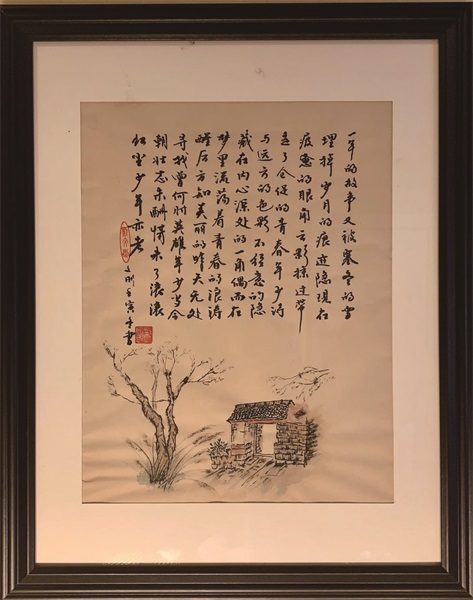 一年的故事又被寒冬的雪
埋掉岁月的痕迹隐现在
疲惫的眼角云影掠过带
走了仓促的青春年少诗
与远方的色彩不经意的隐
藏在内心深处的一角偶而在
梦里流荡着青春的浪涛
醒后方知美丽的昨天无处
寻找曾何时英雄年少当今
朝壮志未酬情未了滚滚
红尘少年亦老
壬寅年书